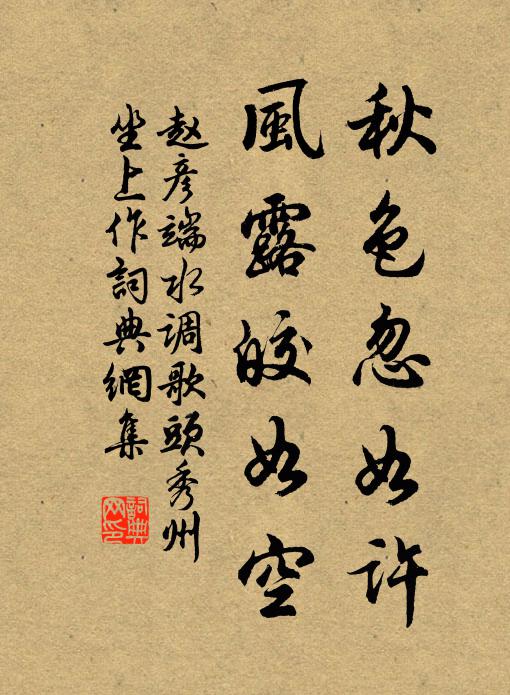 秋色忽如许
風露皎如空
赵彦端水调歌頭秀州
坐上作詞典網集
詞典网印